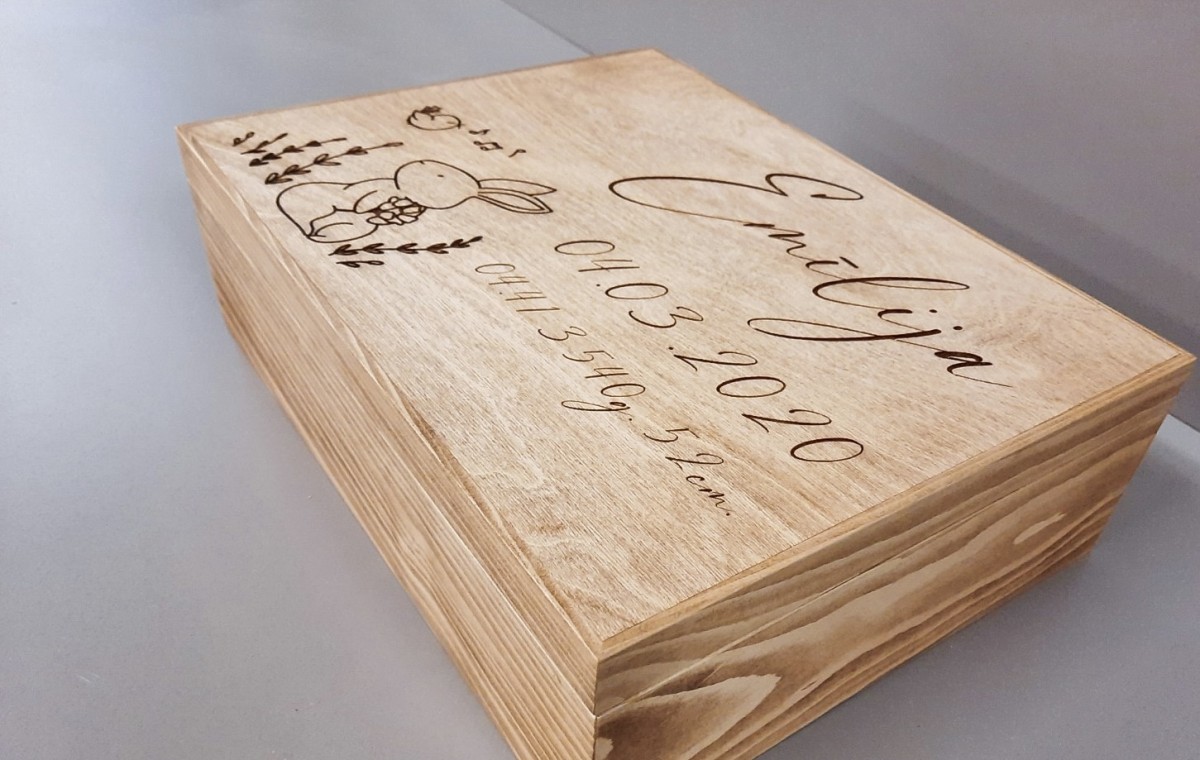 Emīlija
04.03.2020
04.41 3540g. 52cm.